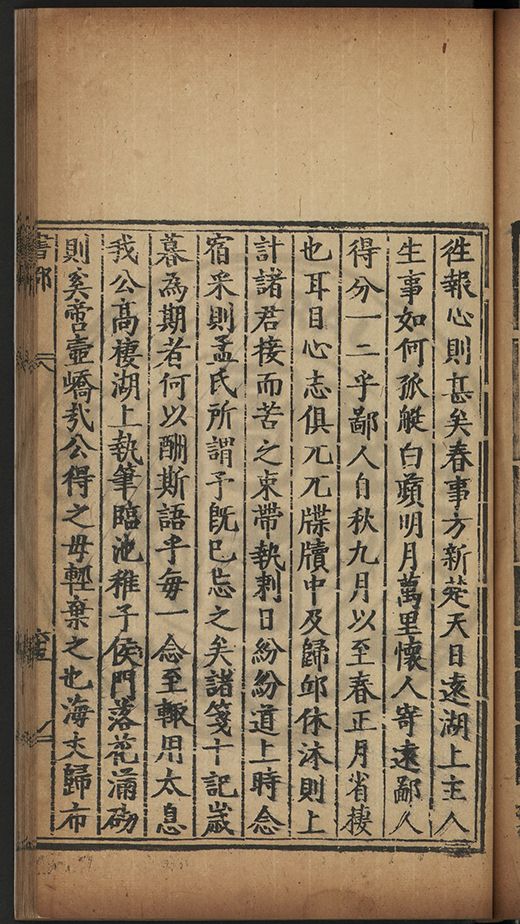 徃報心則甚矣春事方新楚天日遠湖上主人
生事如何孤艇白蘋明月萬里懷人寄遠鄙人
得分一二乎鄙人自秋九月以至春正月省棲
也耳目心志俱兀兀牒牘中及歸邸休沐則上
計諸君接而苦之束帶執刺日紛紛道上時念
宿采則孟氏所謂予旣已忘之矣諸箋十記歲
暮為期者何以酬斯語乎每一念至輙用太息
我公高棲湖上執筆臨池稚子侯門落花滿砌
則奚啻壺嶠哉公得之毋輕棄之也海丈歸布